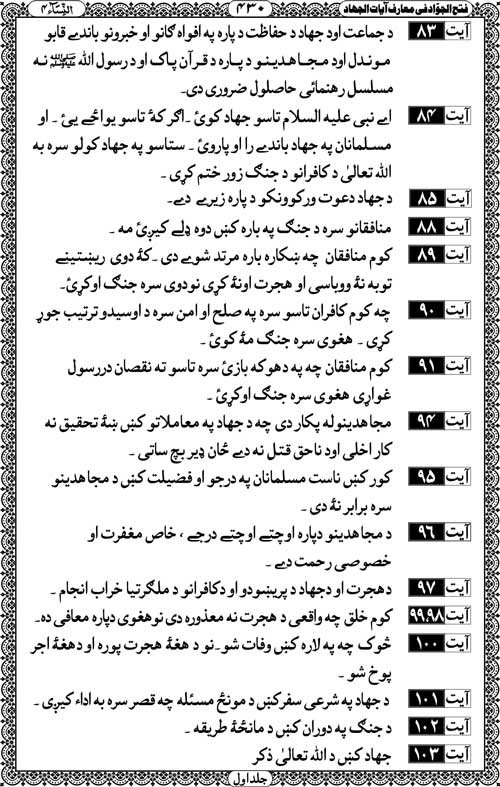 فتح الجوّاد فی معارف آیات الجهاد
۴۳۰
النِّسَاء ۴
آیت ۸۳ د جماعت اود جهاد د حفاظت د پاره په افواه ګانو او خبرونو باندے قابو
موندل اود مجاهدینو د پاره د قرآن پاک او د رسول الله ﷺ نه
مسلسل رهنمائی حاصلول ضروری دی۔
آیت ۸۴ اے نبی علیه السلام تاسو جهاد کوئ ۔ اګر کهٔ تاسو یواځے یئ ۔ او
مسلمانان په جهاد باندے را او پاروئ ۔ ستاسو په جهاد کولو سره به
الله تعالیٰ د کافرانو د جنګ زور ختم کړی ۔
آیت ۸۵ د جهاد دعوت ورکوونکو د پاره زیرے دے۔
آیت ۸۸ منافقانو سره د جنګ په باره کښ دوه ډلے کیږئ مه ۔
آیت ۸۹ کوم منافقان چه ښکاره باره مرتد شوے دی ۔ کهٔ دوی ریښتینے
توبه نهٔ ووباسی او هجرت اونهٔ کړی نو دوی سره جنګ اوکړئ۔
آیت ۹۰ چه کوم کافران تاسو سره په صلح او امن سره د اوسیدو ترتیب جوړ
کړی ۔ هغوی سره جنګ مهٔ کوئ ۔
آیت ۹۱ کوم منافقان چه په دهوکه بازئ سره تاسو ته نقصان دررسول
غواړی هغوی سره جنګ اوکړئ ۔
آیت ۹۴ مجاهدینوله پکار دی چه د جهاد په معاملاتو کښ ښهٔ تحقیق نه
کار اخلی اود ناحق قتل نه دے ځان ډیر بچ ساتی ۔
آیت ۹۵ کور کښ ناست مسلمانان په درجو او فضیلت کښ د مجاهدینو
سره برابر نهٔ دی ۔
آیت ۹۶ د مجاهدینو دپاره اوچتے اوچتے درجے ، خاص مغفرت او
خصوصی رحمت دے ۔
آیت ۹۷ دهجرت او دجهاد د پریښودو او دکافرانو د ملګرتیا خراب انجام ۔
آیت ۹۹،۹۸ کوم خلق چه واقعی د هجرت نه معذوره دی نو هغوی دپاره معافی ده۔
آیت ۱۰۰ څوک چه په لاره کښ وفات شو۔ نو د هغهٔ هجرت پوره او دهغهٔ اجر
پوخ شو ۔
آیت ۱۰۱ د جهاد په شرعی سفرکښ د مونځ مسئله چه قصر سره به اداء کیږی ۔
آیت ۱۰۲ د جنګ په دوران کښ د مانځهٔ طریقه ۔
آیت ۱۰۳ جهاد کښ د الله تعالیٰ ذکر
جلد اول